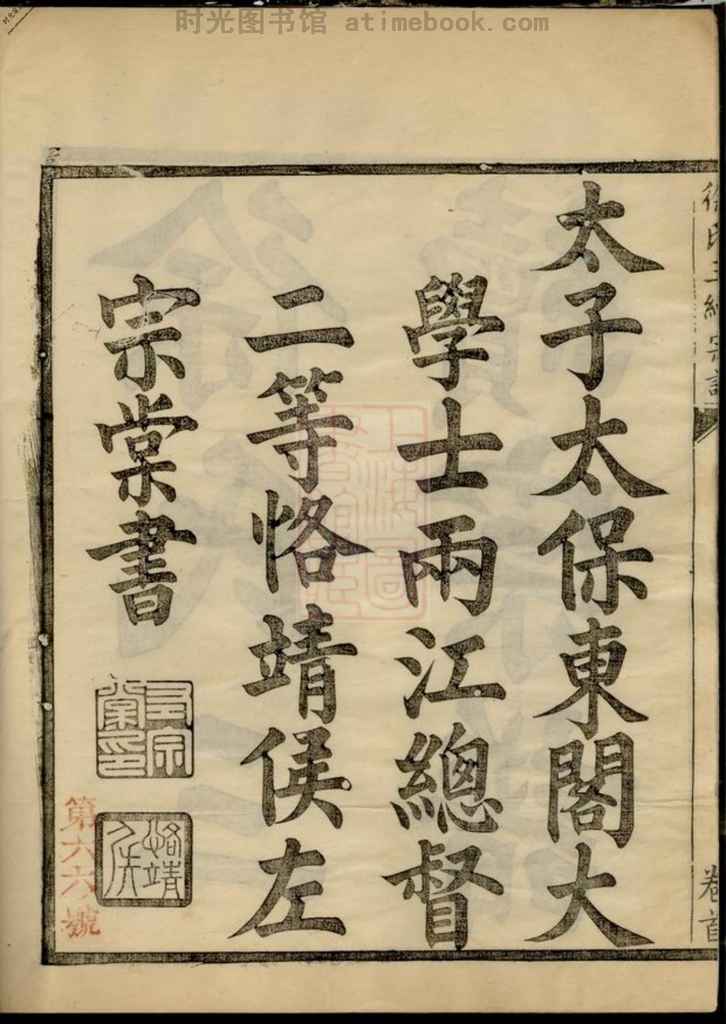 时光图书馆 atimebook.com
太子太保東閣大
學士兩江總督
二等恪靖侯左
宗棠書
左宗
棠印
恪靖
侯
第六六號
卷首